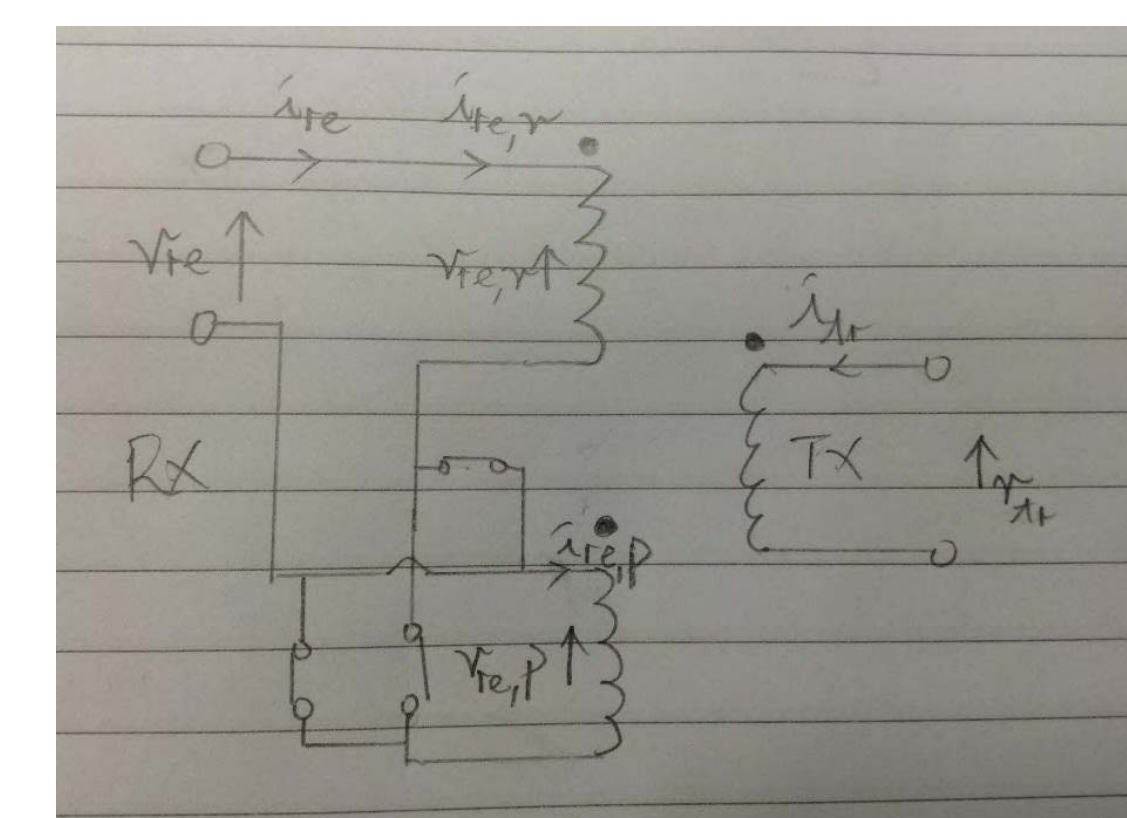 i_re i_re,r
v_re
v_re,r
i_tr
RX
TX
v_tr
i_re,p
v_re,p